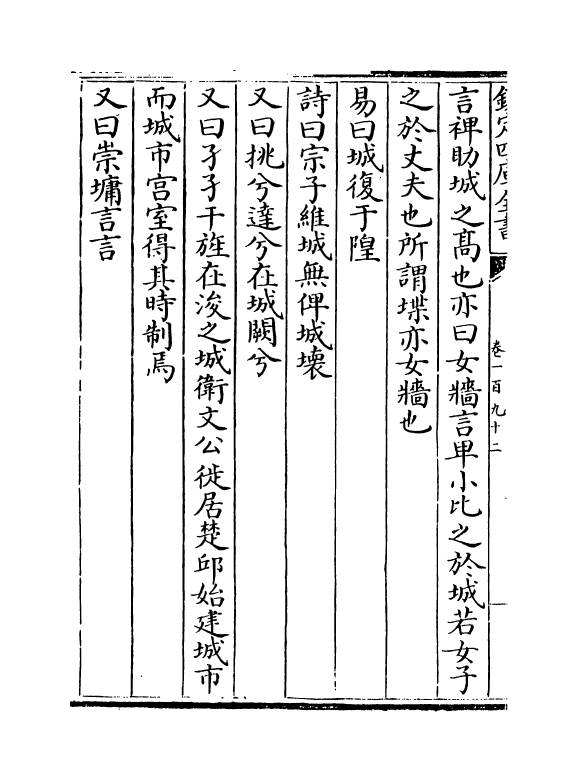 欽定四庫全書
卷一百九十二
言裨助城之髙也亦曰女牆言卑小比之於城若女子
之於丈夫也所謂堞亦女牆也
易曰城復于隍
詩曰宗子維城無俾城壊
又曰挑兮達兮在城闕兮
又曰孑孑干旌在浚之城衛文公徙居楚邱始建城市
而城市宫室得其時制焉
又曰崇墉言言